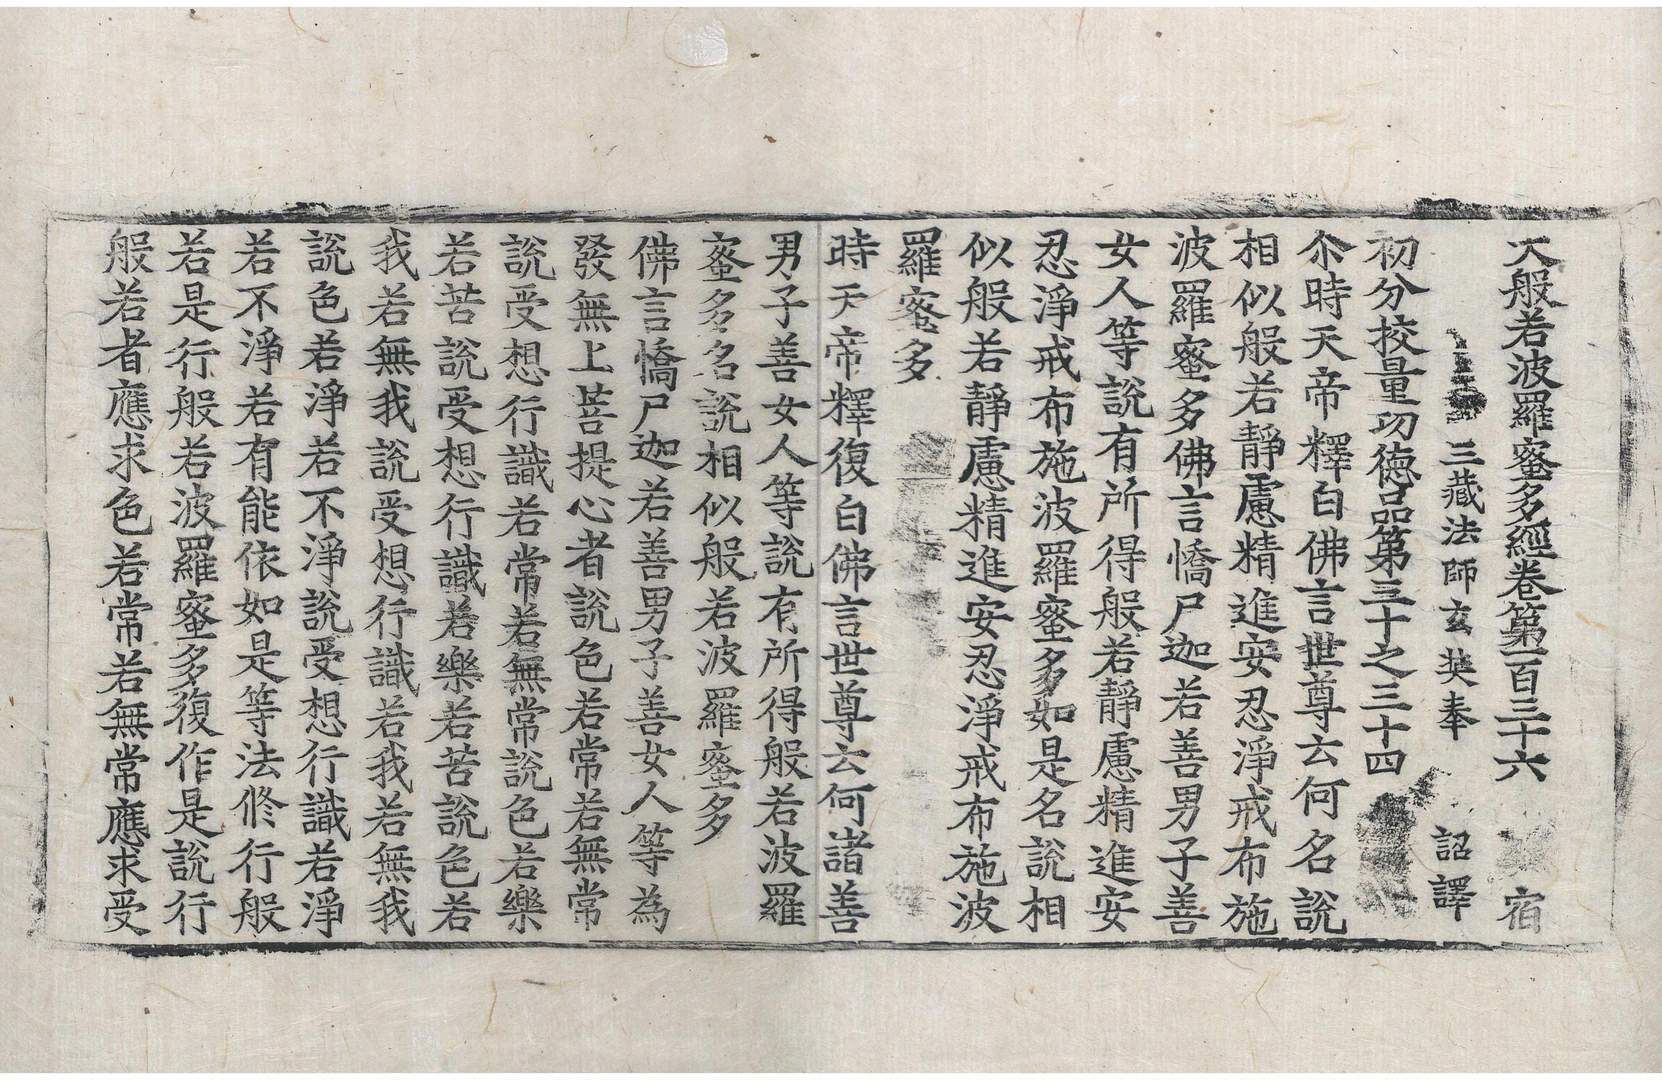 大般若波羅蜜多經卷第一百三十六 宿
三藏法師玄奘奉 詔譯
初分挍量功德品第三十之三十四
尒時天帝釋白佛言世尊云何名說
相似般若靜慮精進安忍淨戒布施
波羅蜜多佛言憍尸迦若善男子善
女人等說有所得般若靜慮精進安
忍淨戒布施波羅蜜多如是名說相
似般若靜慮精進安忍淨戒布施波
羅蜜多
時天帝釋復白佛言世尊云何諸善
男子善女人等說有所得般若波羅
蜜多名說相似般若波羅蜜多
佛言憍尸迦若善男子善女人等為
發無上菩提心者說色若常若無常
說受想行識若常若無常說色若樂
若苦說受想行識若樂若苦說色若
我若無我說受想行識若我若無我
說色若淨若不淨說受想行識若淨
若不淨若有能依如是等法修行般
若是行般若波羅蜜多復作是說行
般若者應求色若常若無常應求受